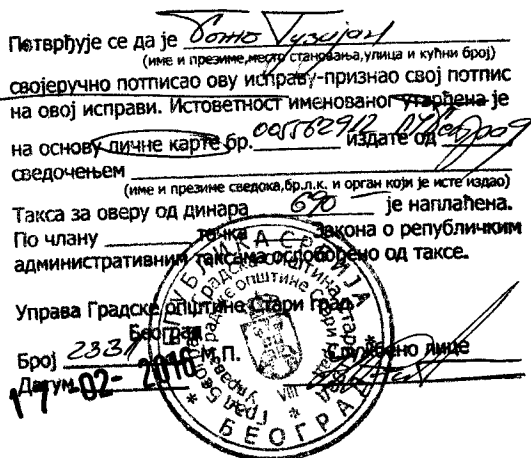 Потврђује се да је
(име и презиме, место становања, улица и кућни број)
својеручно потписао ову исправу-признао свој потпис
на овој исправи. Истоветност именованог утврђена је
на основу личне карте бр. 005562912 издате од
сведочењем
(име и презиме сведока, бр.л.к. и орган који је исте издао)
Такса за оверу од динара 690 је наплаћена.
По члану тачка Закона о републичким
административним таксама ослобођено од таксе.
Управа Градске општине Стари Град
Београд
Број 2331 М.П. Службено лице
Датум
17-02-2016
РЕПУБЛИКА СРБИЈА
БЕОГРАД
VIII